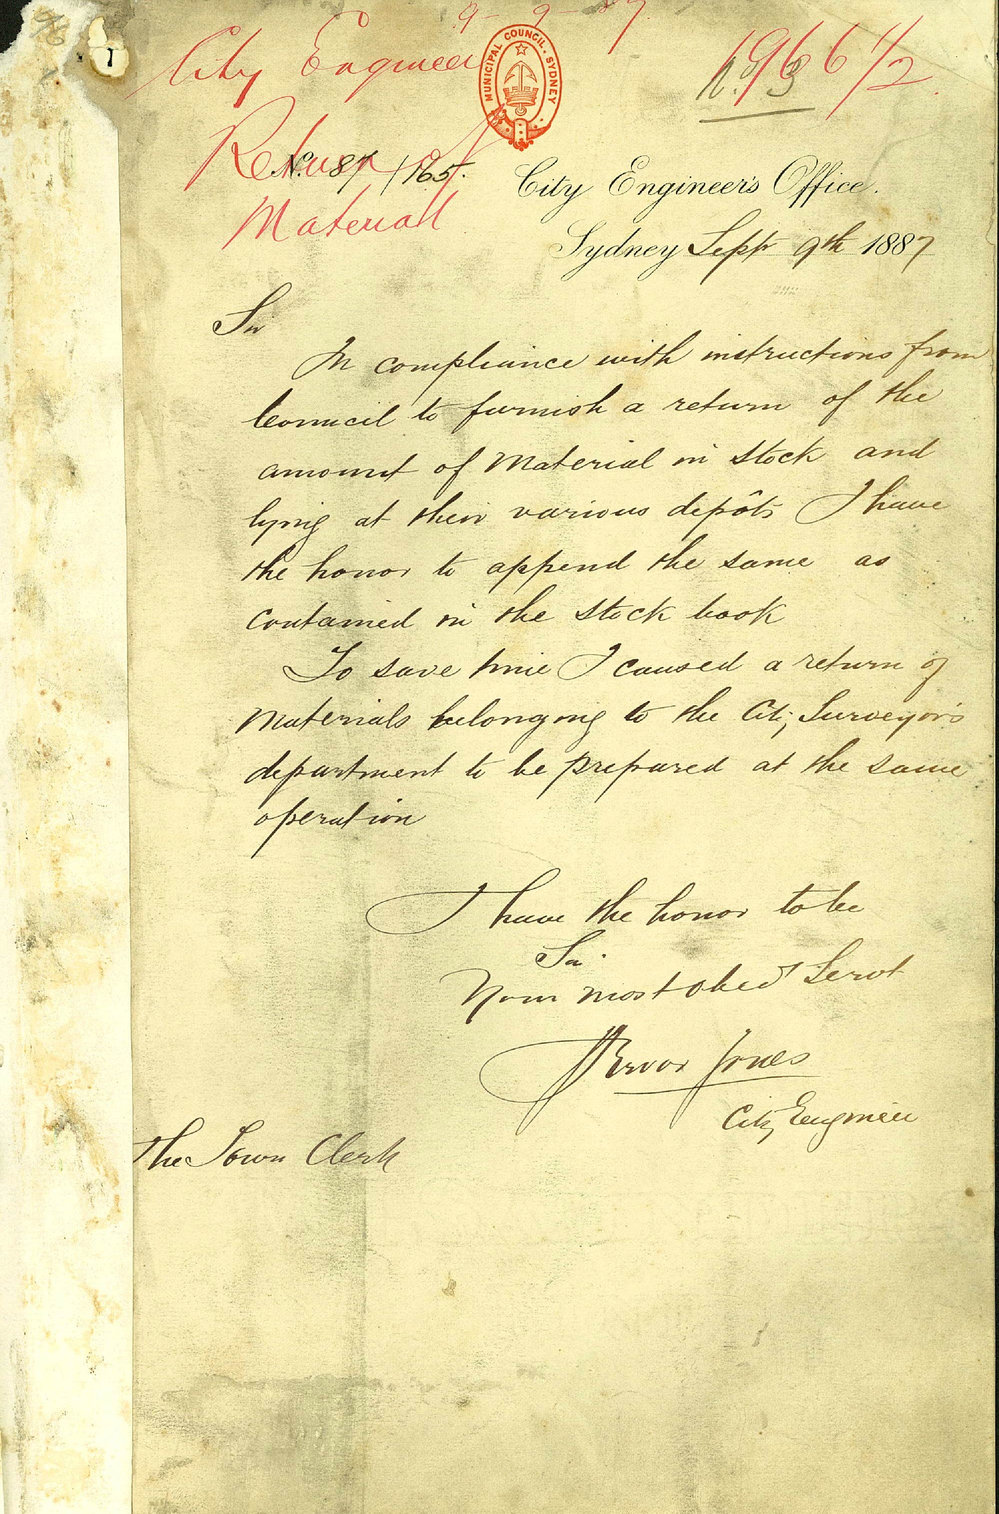 9-9-87
City Engineer
MUNICIPAL COUNCIL. SYDNEY
1966 1/2
No 3
Return of
No. 87/165.
Material
City Engineer's Office.
Sydney Sept 9th 1887
Sir
In compliance with instructions from
Council to furnish a return of the
amount of Material in stock and
lying at their various depôts I have
the honor to append the same as
contained in the stock book
To save time I caused a return of
Materials belonging to the City Surveyor's
department to be prepared at the same
operation
I have the honor to be
Sir.
Your most obedt Servt
Trevor Jones
City Engineer
The Town Clerk